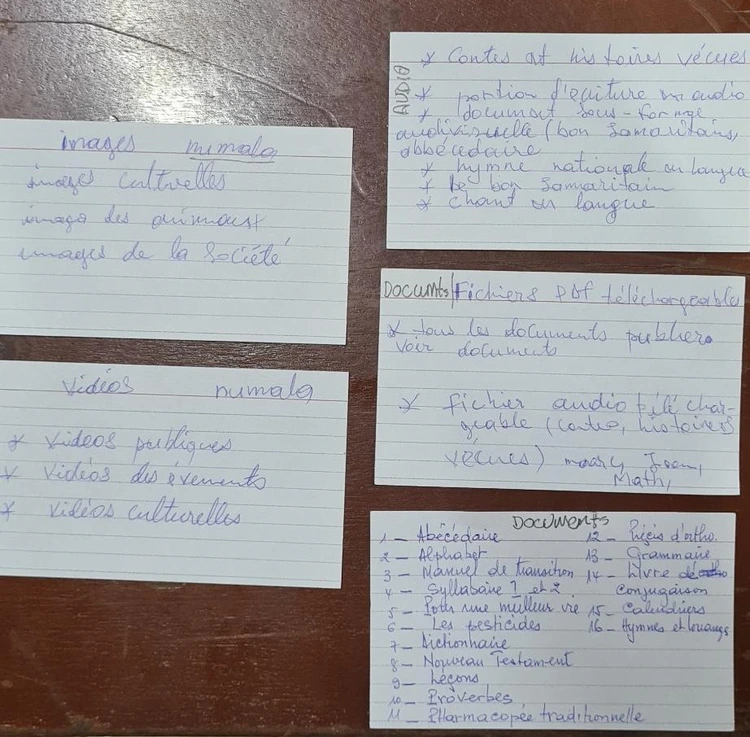 images numala
images culturelles
image des animaux
images de la Société
Vidéos numala
* Videos publiques
* Vidéos des événents
* vidéos culturelles
AUDIO
* Contes et histoires vécues
* portion d'écriture en audio
* document sous-forme
audivisuelle (bon Samaritain,
abbécédaire
* hymne nationale en langue
* le bon Sammaritain
* chant en langue
DOCUMTS/Fichiers PDF téléchargeable
* tous les documents publiers
voir documents
* fichier audio télé char-
geable (contes, histoires
vécues) Jean,
Math,
DOCUMENTS
1 — Abécédaire
2 — Alphabet
3 — Manuel de transition
4 — Syllabaire 1 et 2
5 — Pour une meilleur vie
6 — Les pesticides
7 — Dictionnaire
8 — Nouveau Testament
9 — Leçons
10 — Proverbes
11 — Pharmacopée traditionnelle
12 — Précis d'ortho.
13 — Grammaire
14 — Livre de
Conjugaison
15 — Calendriers
16 — Hymnes et louanges